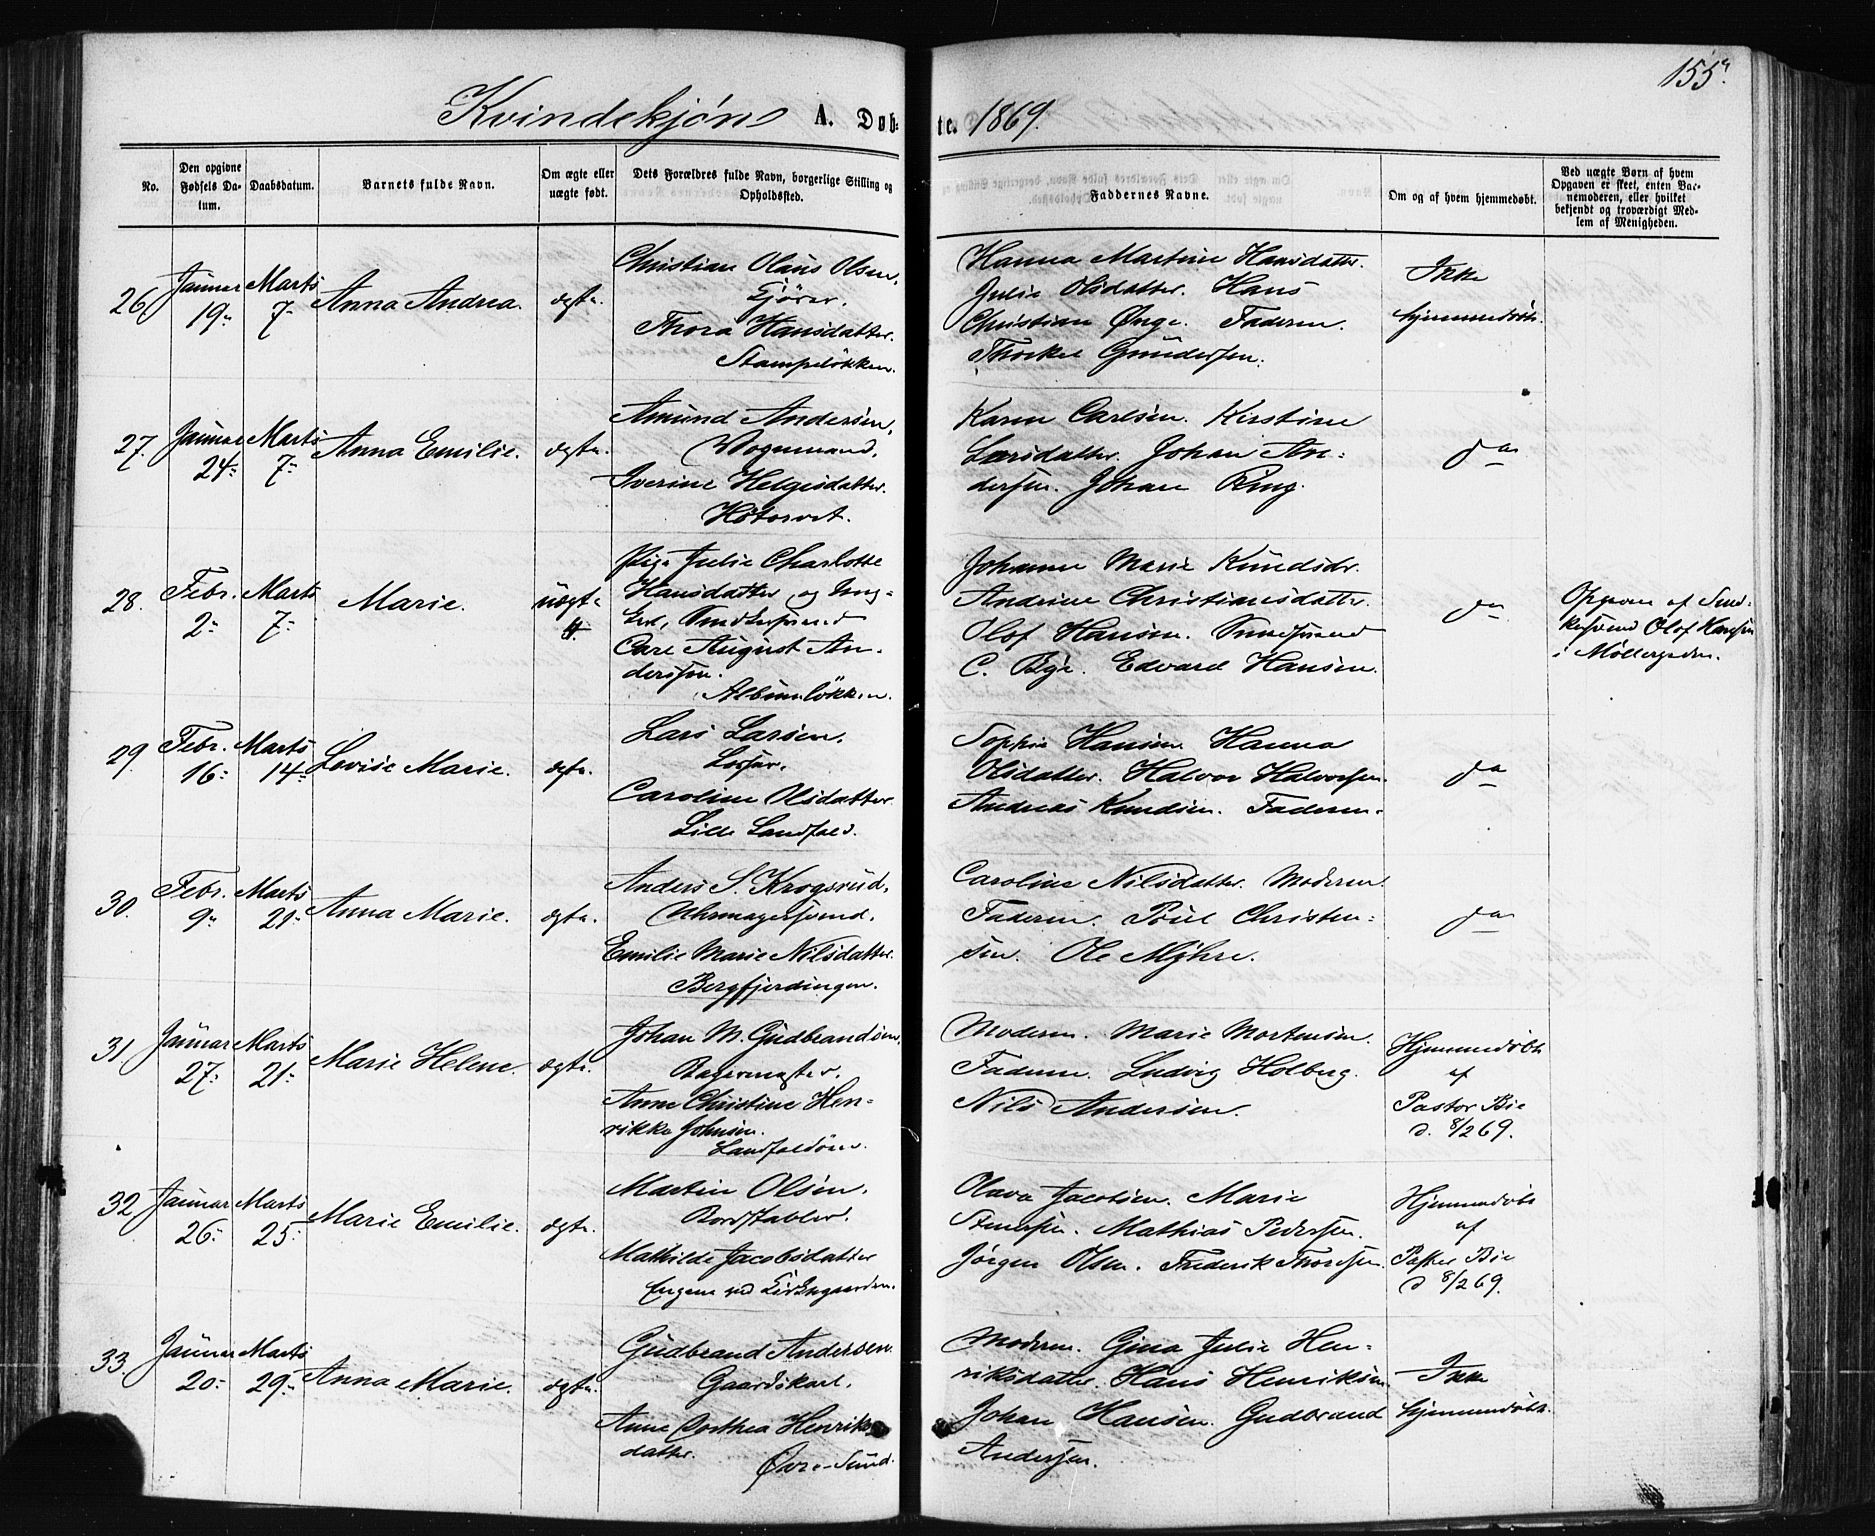 155.
Kvindekjøn A. Døb-
te. 1869.
No.
Den opgivne Fødsels Da-
tum.
Daabsdatum.
Barnets fulde Navn.
Om ægte eller
uægte født.
Dets Forældres fulde Navn, borgerlige Stilling og
Opholdssted.
Faddernes Navne.
Om og af hvem hjemmedøbt.
Ved uægte Børn af hvem
Opgaven er skeet, enten Bar-
nemoderen, eller hvilket
bekjendt og troværdigt Med-
lem af Menigheden.
26
Januar
19
Marts
7
Anna Andrea.
ægte.
Christian Olaus Olsen,
Kjører.
Thora Hansdatter.
Stampeløkken.
Hanna Martine Hansdatter.
Julie Olsdatter. Hans
Christian Faderen.
Thorkel Gundersen.
Ikke
hjemmedøbt.
27.
Januar
24
Marts
7
Anna Emilie.
ægte.
Amund Andersen,
Vognmand.
Iverine Helgesdatter.
Høtorvet.
Karen Carlsen. Kirstine
Larsdatter. Johan An-
dersen. Johan Ring.
do
28.
Febr.
2
Marts
7
Marie.
uægte
Pige Julie Charlotte
Hansdatter og Ung-
karl, Smedsvend
Carl August An-
dersen.
Albumløkken.
Johanne Marie Knudsdr.
Andrine Christiansdatter.
Olof Hansen. Smedsvend
C. Bye. Edvard Hansen.
do
Opgaven af Smed-
kesvend Olof Hansen
i Møllergaden.
29.
Febr.
16
Marts
14
Lovise Marie.
ægte.
Lars Larsen,
Losser.
Caroline Olsdatter.
Lille Landfald.
Sophie Hansen. Hanna
Olsdatter. Halvor Halvorsen.
Andreas Knudsen. Faderen.
do
30.
Febr.
9
Marts
21
Anna Marie.
ægte.
Anders S. Krogsrud,
Uhrmagersvend.
Emilie Marie Nilsdatter.
Bergfjerdingen.
Caroline Nilsdatter. Moderen.
Faderen. Poul Christen-
sen. Ole Myhre.
do
31.
Januar
27
Marts
21
Marie Helene.
ægte.
Johan M. Gudbrandsen,
Bagermester.
Anne Christine Hen-
rikke Johnsen.
Landfaldøen.
Moderen. Marie Mortensen.
Faderen. Ludvig Holberg.
Nils Andersen.
Hjemmedøbt
af
Pastor Bie
d. 8/2 69.
32
Januar
26
Marts
25
Marie Emilie.
ægte.
Martin Olsen.
Bordstabler.
Mathilde Jacobsdatter
Engene ved Kirkegaarden.
Olava Jacobsen. Marie
Stensen. Mathias Pedersen.
Jørgen Olsen. Frederik Thoresen.
Hjemmedøbt
af
Pastor Bie
d 8/2 69.
33.
Januar
20
Marts
29
Anna Marie.
ægte.
Gudbrand Andersen.
Gaardskarl.
Anne Dorthea Henriks-
datter.
Øvre-Sund.
Moderen. Gina Julie Hen-
riksdatter. Hans Henriksen
Johan Hansen. Gudbrand
Andersen.
Ikke
hjemmedøbt.